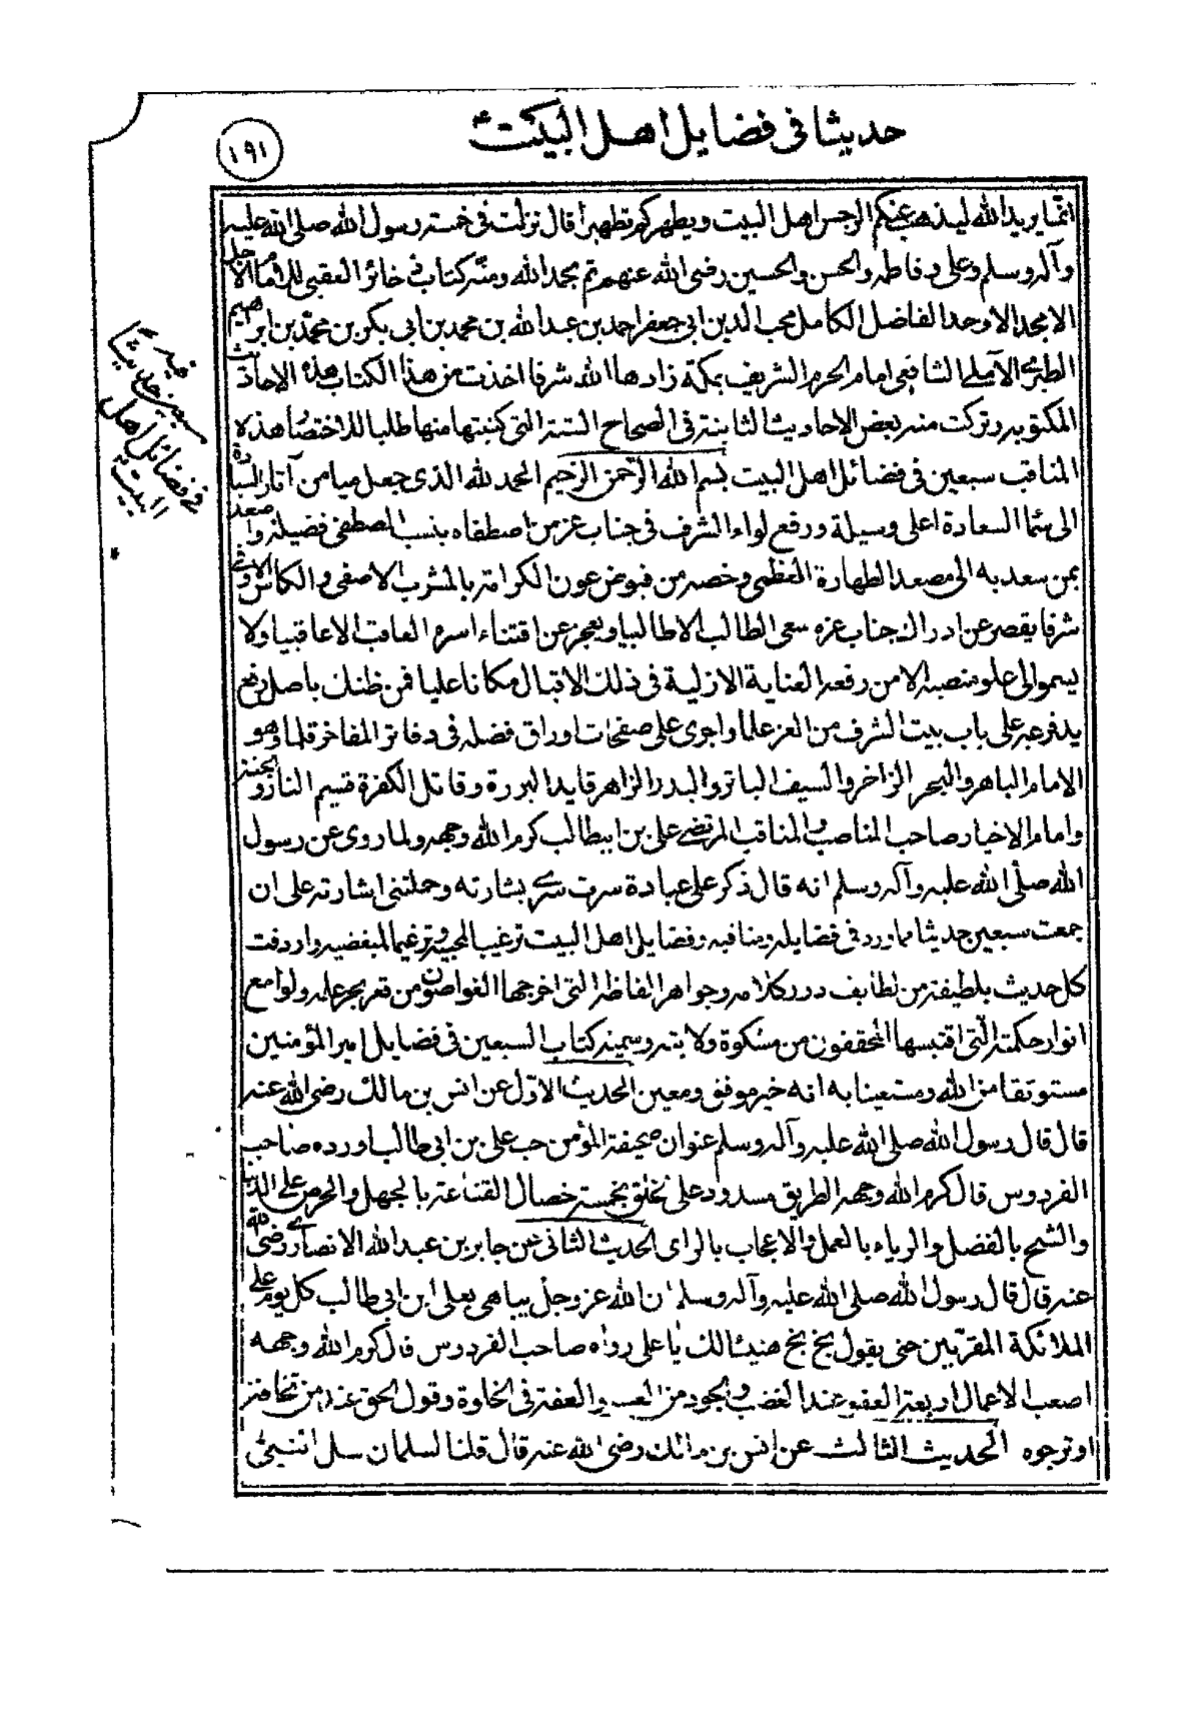 حديثا في فضايل اهل البيت
١٩١
انما يريد الله ليذهب عنكم الرجس اهل البيت ويطهركم تطهيرا قال نزلت في خمسة رسول الله صلى الله عليه
وآله وسلم وعلى وفاطمه والحسن والحسين رضى الله عنهم تم بحمد الله ومنه كتاب ذخائر العقبى للامام الاجل
الامجد الاوحد الفاضل الكامل محب الدين ابى جعفر احمد بن عبد الله بن محمد بن ابى بكر بن محمد بن ابرهيم
الطبرى الآملى الشافعى امام الحرم الشريف بمكة زادها الله شرفا اخذت من هذا الكتاب هذه الاحاديث
المكتوبه وتركت منه بعض الاحاديث الثابتة في الصحاح الستة التى كتبتها منها طلبا للاختصار هذه
المناقب سبعين في فضائل اهل البيت بسم الله الرحمن الرحيم الحمد لله الذى جعل ميامن آثار السادة
الى سما السعادة اعلى وسيلة ورفع لواء الشرف في جناب عز من اصطفاه بنسب المصطفى فضيلة واصعد
بمن سعد به الى مصعد الطهارة العظمى وخصه من فيوض عون الكرامة بالمشرب الاصفى والكاس الاوفى
شرفا يقصر عن ادراك جناب عزه سعى الطالب الاطالبيا ويعجز عن اقتناء اسره العاقب الاعاقبيا ولا
يسموا الى علو منصبه الا من رفعه العناية الازلية في ذلك الاقبال مكانا عليا فمن ظنك باصل رفع
يد فرعه على باب بيت الشرف من العز علما واجرى على صفحات اوراق فضله في دفاتر المفاخر قلما وهو
الامام الباهر والبحر الزاخر والسيف الباتر والبدر الزاهر قايد البررة وقاتل الكفرة قسيم النار والجنة
وامام الاخيار صاحب المناصب والمناقب المرتضى على بن ابيطالب كرم الله وجهه ولما روى عن رسول
الله صلى الله عليه وآله وسلم انه قال ذكر على عبادة سرت سرى بشارته وحملتنى اشارته على ان
جمعت سبعين حديثا مما ورد في فضايله ومناقبه وفضايل اهل البيت ترغيبا لمحبيه وترغيما لمبغضيه واردفت
كل حديث بلطيفة من لطايف درر كلامه وجواهر الفاظه التى اخرجها الغواصون من قعر بحر علمه ولوامع
انوار حكمته التى اقتبسها المحققون من مشكوة ولايته وسميته كتاب السبعين في فضايل امير المؤمنين
مستوثقا من الله ومستعينا به انه خير موفق ومعين الحديث الاول عن انس بن مالك رضى الله عنه
قال قال رسول الله صلى الله عليه وآله وسلم عنوان صحيفة المؤمن حب على بن ابى طالب اورده صاحب
الفردوس قال كرم الله وجهه الطريق مسدود على الخلق بخمسة خصال القناعة بالجهل والحرص على الدنيا
والشح بالفضل والرياء بالعمل والاعجاب بالراى الحديث الثانى عن جابر بن عبد الله الانصارى رضى الله
عنه قال قال رسول الله صلى الله عليه وآله وسلم ان الله عز وجل يباهى بعلى ابن ابى طالب كل يوم على
الملائكة المقربين حتى يقول بخ بخ هنيئا لك يا على رواه صاحب الفردوس قال كرم الله وجهه
اصعب الاعمال اربعة العفو عند الغضب والجود من العسر والعفة في الخلوة وقول الحق عند من تخافه
او ترجوه الحديث الثالث عن انس بن مالك رضى الله عنه قال قلنا لسلمان سل النبى
سبعين حديثا
في فضائل اهل
البيت